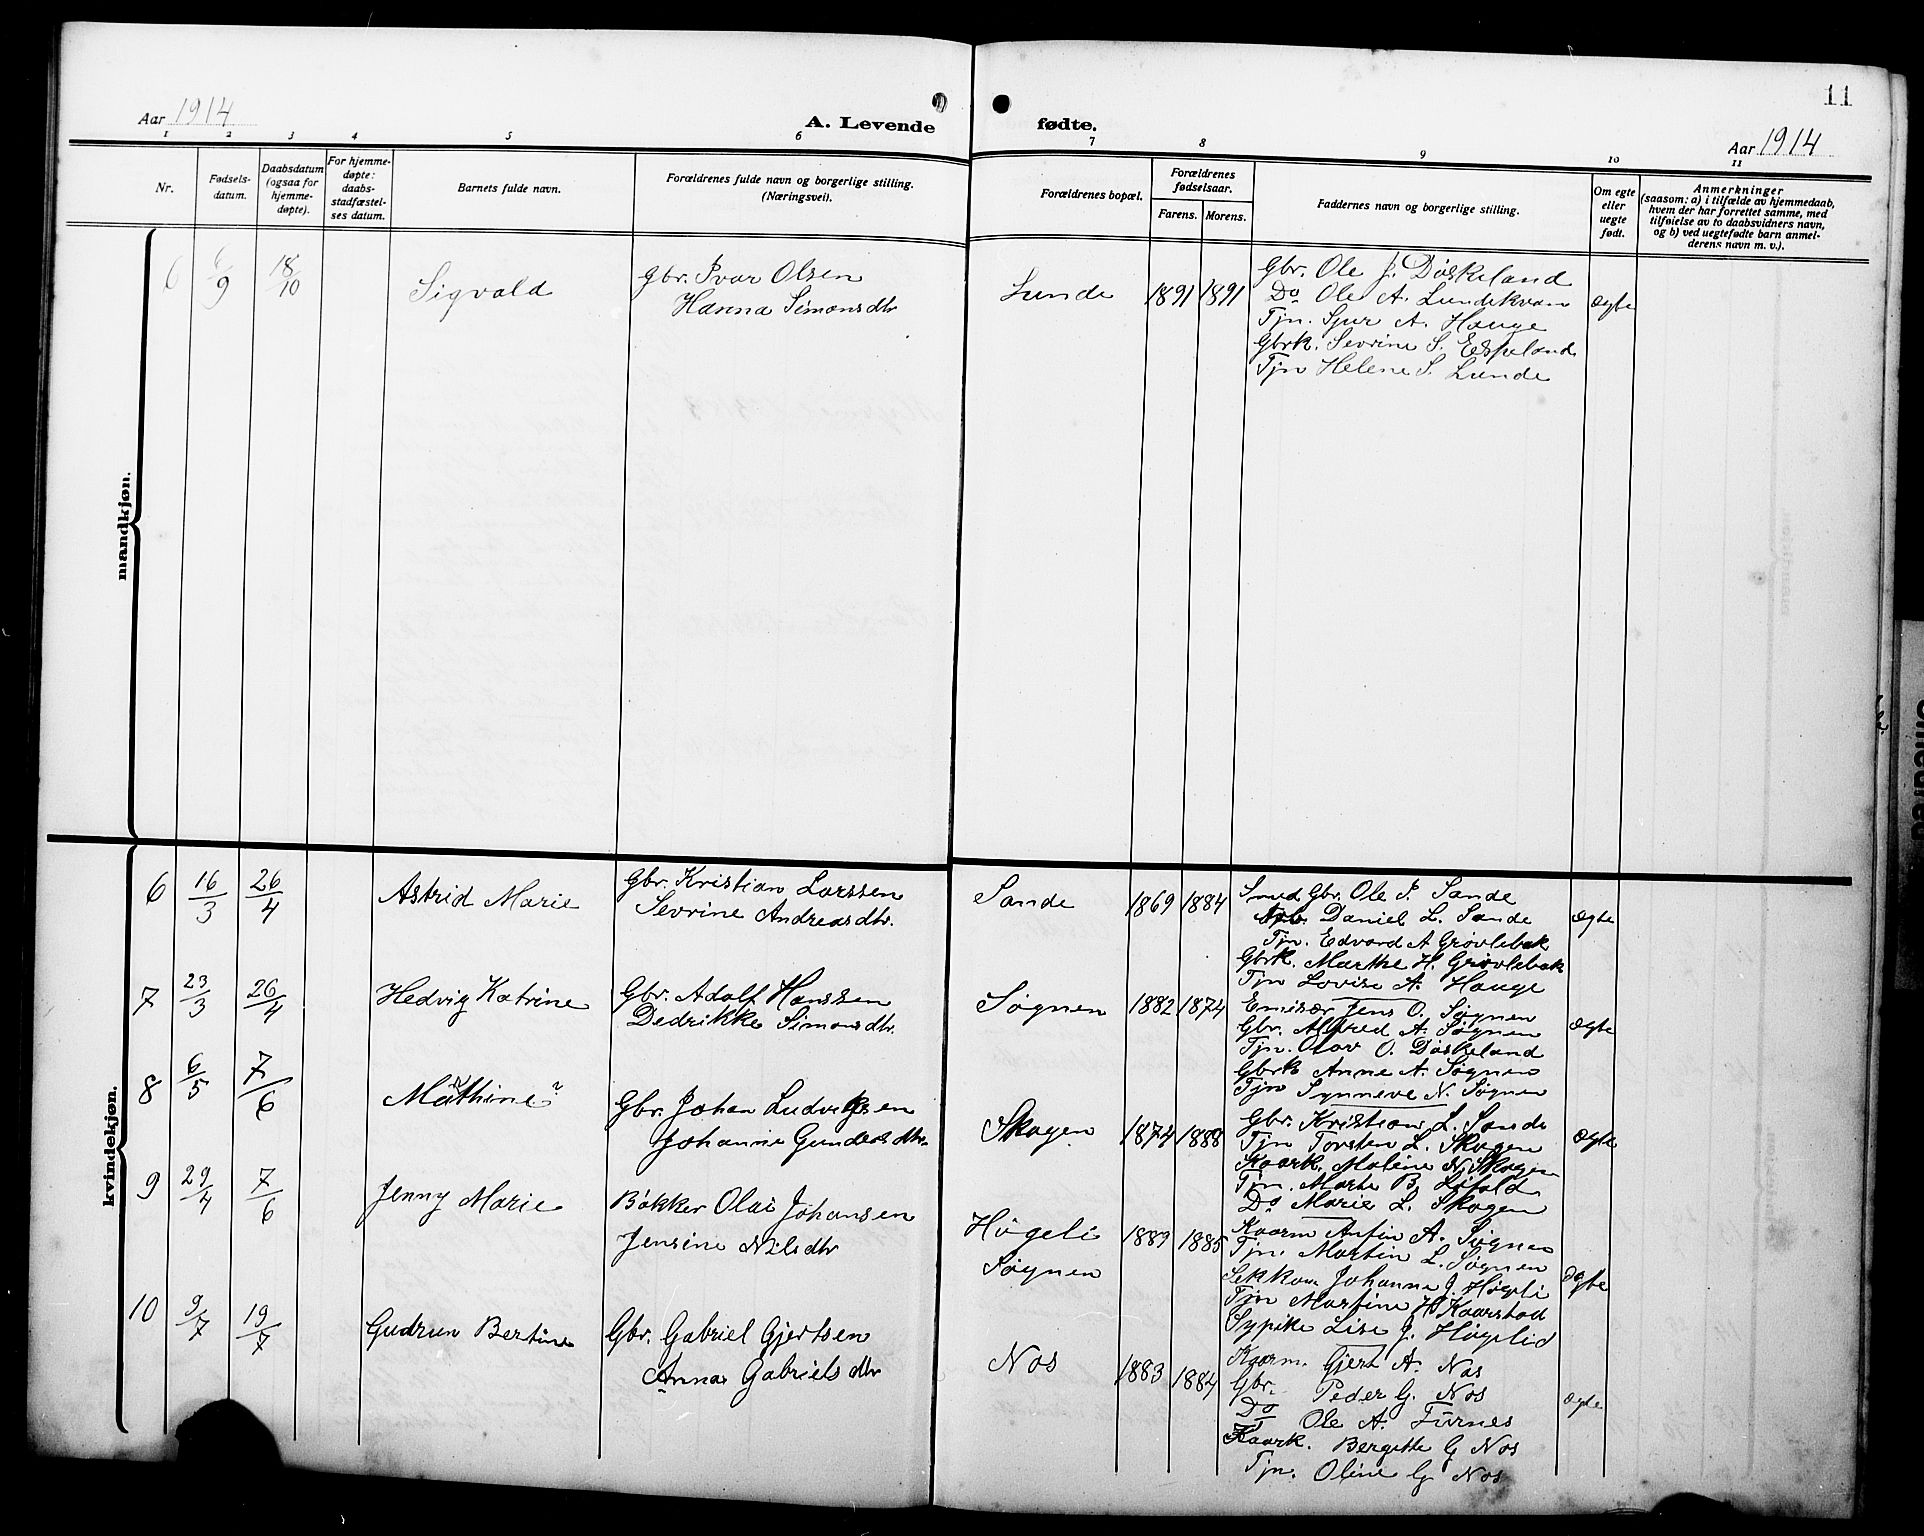 11
Aar 1914
A. Levende
fødte.
Aar 1914
1 2 3 4 5 6 7 8 9 10 11
Nr.
Fødsels-
datum.
Daabsdatum
(ogsaa for
hjemme-
døpte).
For hjemme-
døpte:
daabs-
stadfæstel-
ses datum.
Barnets fulde navn.
Forældrenes fulde navn og borgerlige stilling.
(Næringsvei).
Forældrenes bopæl.
Forældrenes
fødselsaar.
Farens. Morens.
Faddernes navn og borgerlige stilling.
Om egte
eller
uegte
født.
Anmerkninger
(saasom: a) i tilfælde av hjemmedaab,
hvem der har forrettet samme, med
tilføielse av to daabsvidners navn,
og b) ved uegtefødte barn anmel-
derens navn m. v.).
mandkjøn.
6 6/9 18/10 Sigvald
Gbr. Ivar Olsen
Hanna Simonsdtr
Lunde 1891 1891
Gbr. Ole J. Døskeland
Do Ole A. Lundekvam
Tjn. Sjur A. Hauge
Gbrk. Sevrine S. Espeland
Tjn Helene S. Lunde
ægte
kvindekjøn.
6 16/3 26/4 Astrid Marie
Gbr. Kristian Larssen
Sevrine Andreasdtr.
Sande 1869 1884
Smed Gbr. Ole P. Sande
Daniel L. Sande
Tjn. Edvard A Grøvlebak
Gbrk. Marthe H. Grøvlebak
Tjn Lovise A. Hauge
ægte
7 23/3 26/4 Hedvig Katrine
Gbr. Adolf Hanssen
Dedrikke Simonsdtr.
Søgnen 1882 1874
Emisær Jens O. Søgnen
Gbr. Alfred A. Søgnen
Tjn. Olav O. Døskeland
Gbrk Anne A. Søgnen
Tjn Synneve N. Søgnen
ægte
8 6/5 7/6 Mathine?
Gbr. Johan Ludvigsen
Johanne Gundersdtr.
Skogen 1874 1888
Gbr. Kristian L. Sande
Tjn Torsten L. Skogen
Kaark. Malene N. Skogen
Tjn. Marta B.
Do Marie L. Skogen
ægte
9 29/4 7/6 Jenny Marie
Bøkker Olai Johansen
Jensine Nilsdtr
Høgeli
Søgnen
1889 1885
Kaarm Anfin A. Søgnen
Tjn. Martin L. Søgnen
Johanna J. Høgeli
Tjn Martine H Kaarstad
Sypike Lise J. Høgelid
ægte
10 9/7 19/7 Gudrun Bertine
Gbr. Gabriel Gjertsen
Anna Gabrielsdtr
Nos 1883 1884
Kaarm. Gjert A. Nos
Gbr. Peder G. Nos
Do Ole A. Furnes
Kaark. Bergitte G Nos
Tjn. Oline G Nos
ægte